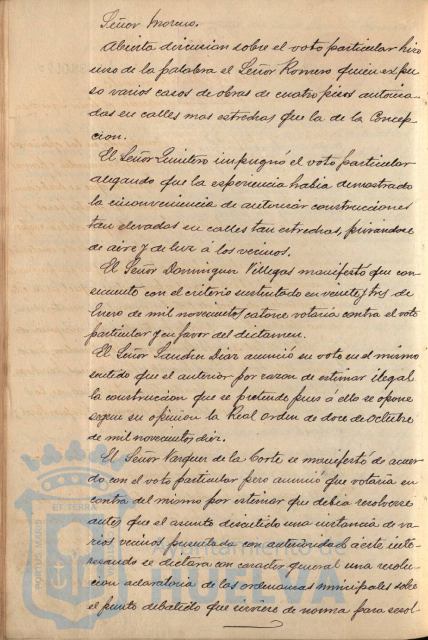 Señor Moreno.
Abierta discusion sobre el voto particular hizo
uso de la palabra el Señor Romero quien expu-
so varios casos de obras de cuatro pisos autoriza-
das en calles mas estrechas que la de la Concep-
cion.
El Señor Quintero impugnó el voto particular
alegando que la esperiencia habia demostrado
la inconveniencia de autorizar construcciones
tan elevadas en calles tan estrechas, privandose
de aire y de luz á los vecinos.
El Señor Dominguez Villegas manifestó que con-
secuente con el criterio sustentado en veinte y tres de
Enero de mil novecientos catorce votaria contra el voto
particular y en favor del dictamen.
El Señor Sanchez Diaz anunció su voto en el mismo
sentido que el anterior por razon de estimar ilegal
la construccion que se pretende pues á ello se opone
segun su opinion la Real orden de doce de Octubre
de mil novecientos diez.
El Señor Vazquez de la Corte se manifestó de acuer-
do con el voto particular pero anunció que votaria en
contra del mismo por estimar que debia resolverse
antes que el asunto discutido una instancia de va-
rios vecinos presentada con anterioridad á este inte-
resando se dictara con caracter general una resolu-
cion aclaratoria de las ordenanzas municipales sobre
el punto debatido que sirviere de norma para resol-
PORTUS MARIS
ET TERRÆ
Ayuntamiento de
HUELVA